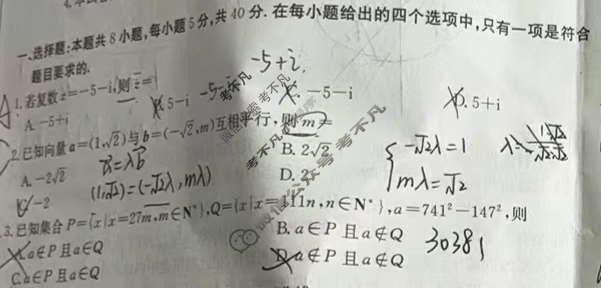 一、选择题:本题共8小题,每小题5分,共40分.在每小题给出的四个选项中,只有一项是符合
题目要求的.
-5+i
1.若复数z=-5-i,则z̄=
A.-5+i B.5-i -5 C.-5-i D.5+i
2.已知向量a=(1,√2)与b=(-√2,m)互相平行,则m=
A.-2√2 B.2√2
C.-2 D.2
a=λb
(1,√2)=(-√2λ,mλ)
{-√2λ=1
mλ=√2
3.已知集合P={x|x=27m,m∈N*},Q={x|x=111n,n∈N*},a=741²-147²,则
B.a∈P且a∉Q 30381
A.a∈P且a∈Q
C.a∉P且a∈Q D.a∉P且a∉Q